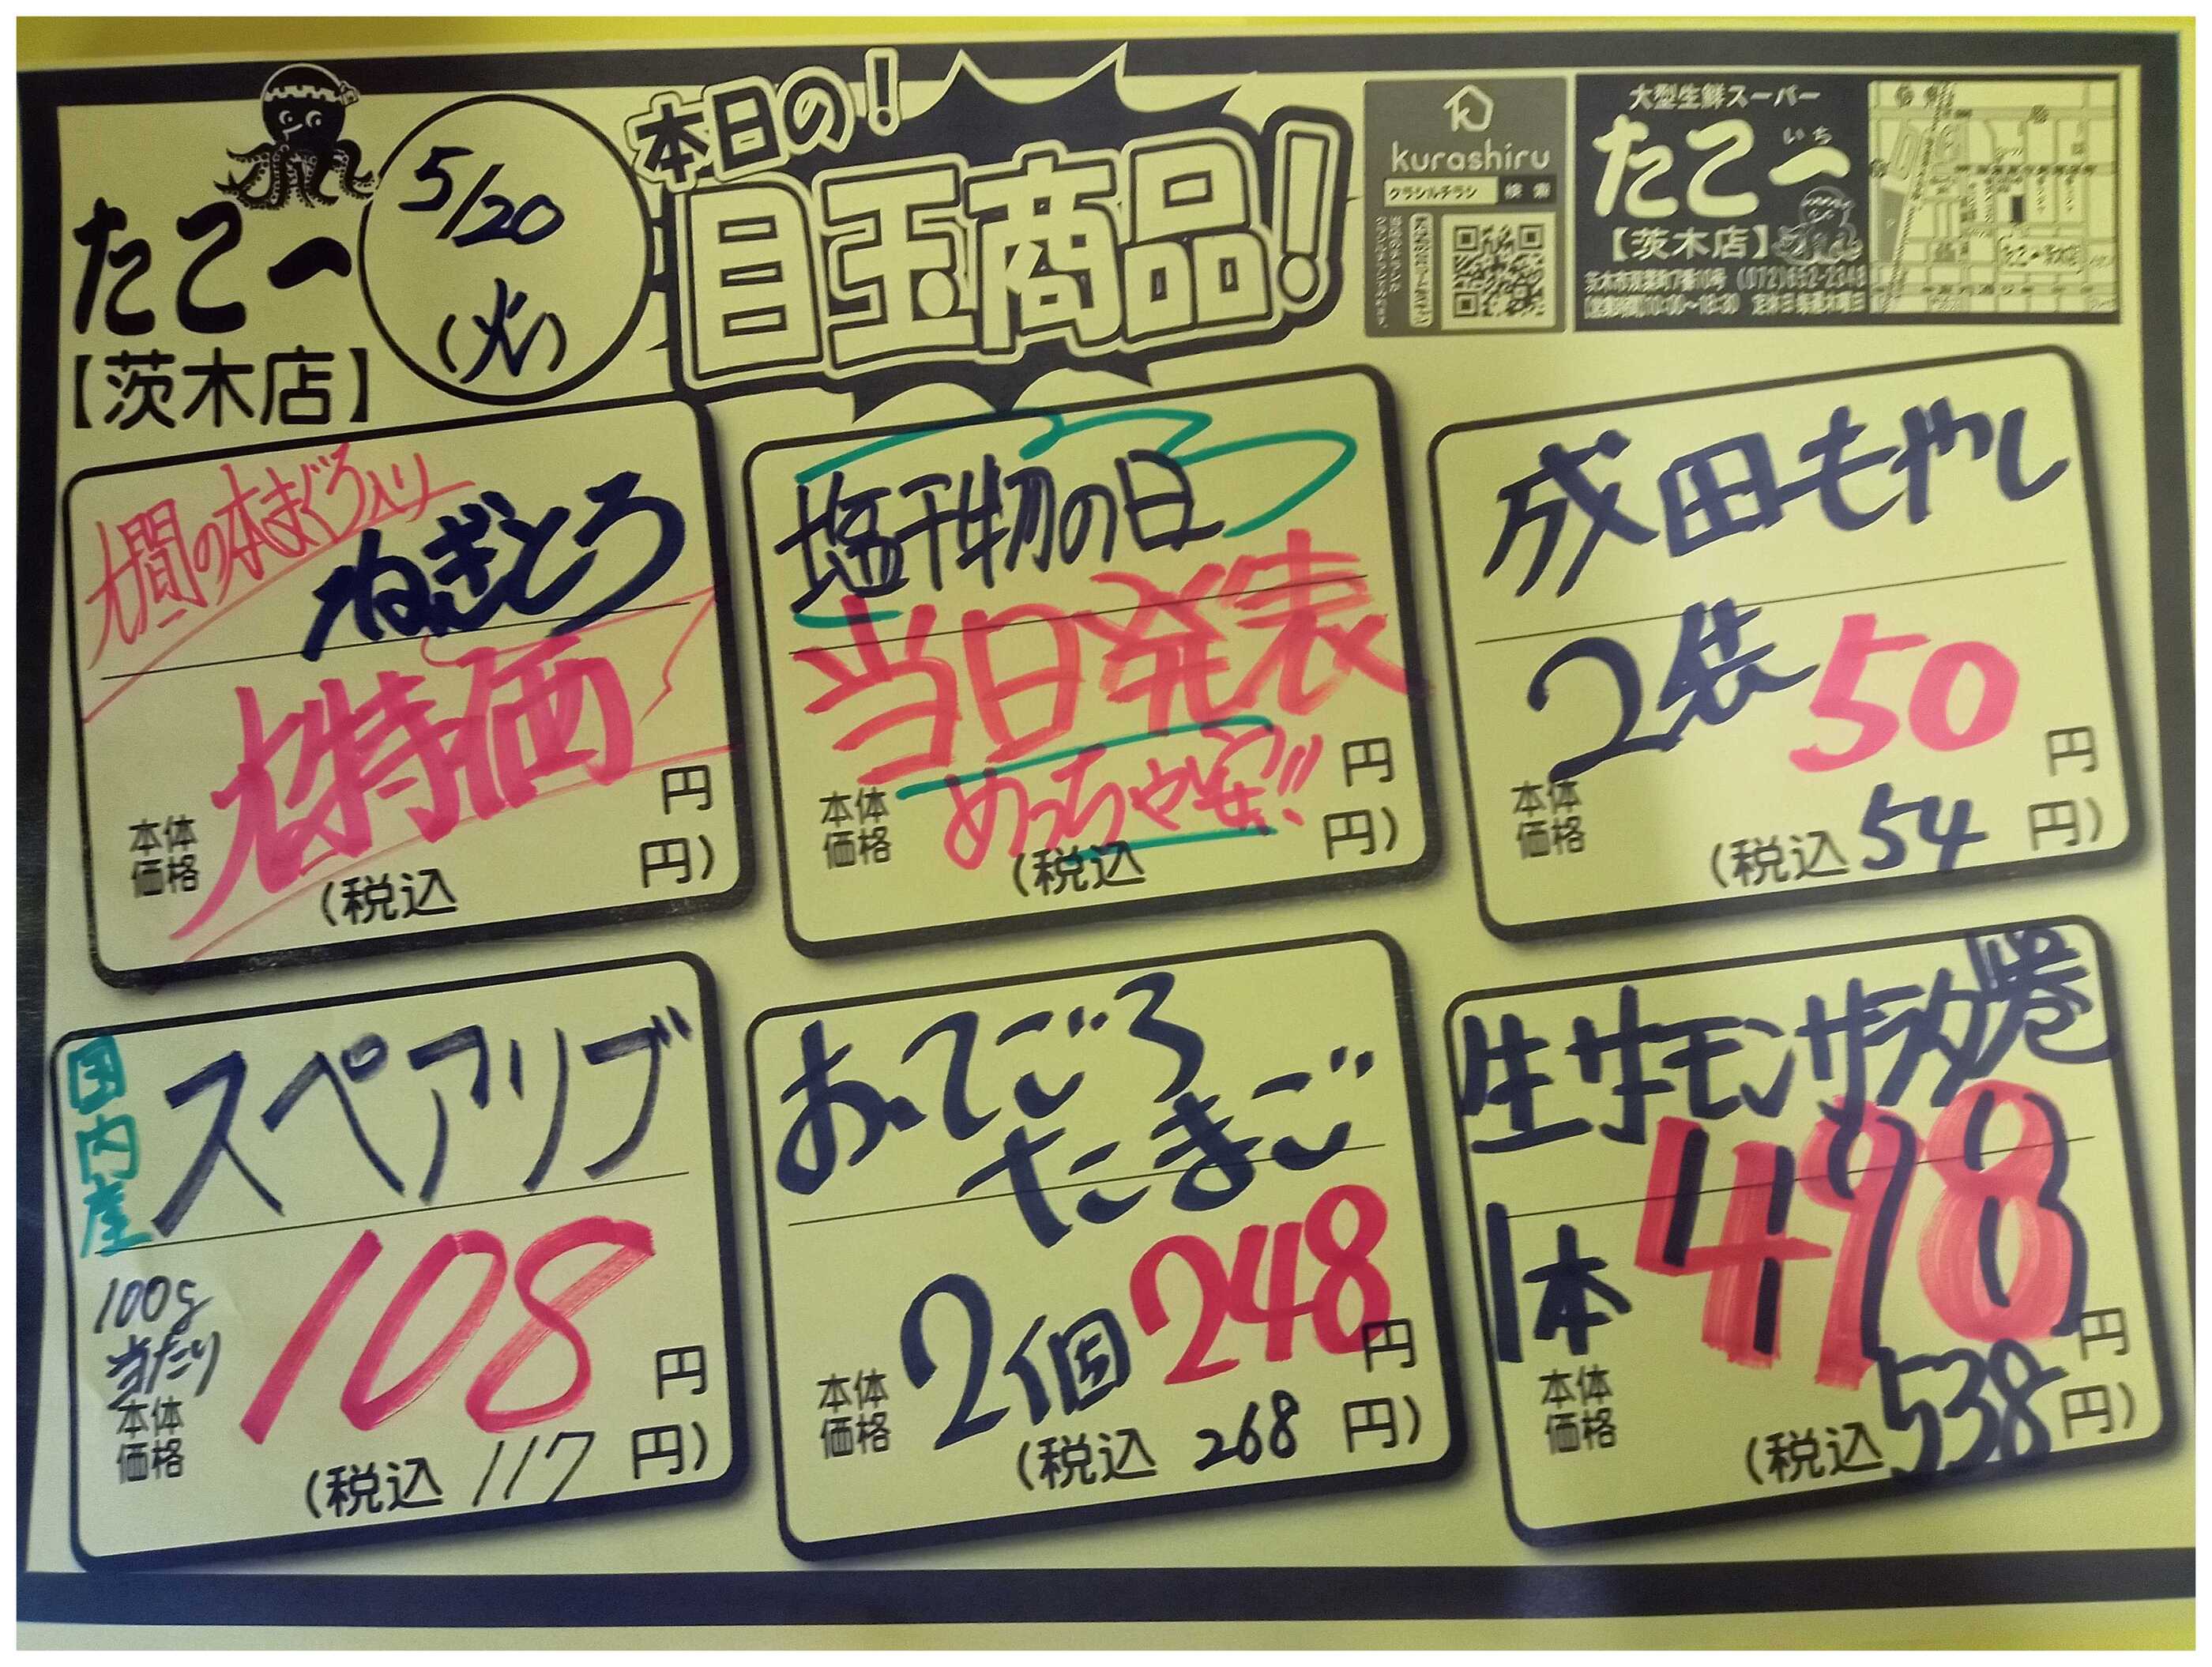 たこ一
【茨木店】
5/20
(火)
本日の!
目玉商品!
kurashiru
クラシルチラシ 検索
大型生鮮スーパー
たこ一
いち
【茨木店】
大間の本まぐろ入り
ねぎとろ
大特価
本体
価格
円
(税込 円)
塩干物の日
当日発表
めっちゃ安!!
本体
価格
円
(税込 円)
成田もやし
2袋 50
本体
価格
円
(税込 54 円)
国内産
スペアリブ
100g
当たり
108
本体
価格
円
(税込 117 円)
おてごろ
たまご
2個 248
本体
価格
円
(税込 268 円)
生サーモンサラダ巻
1本 498
本体
価格
円
(税込 538 円)